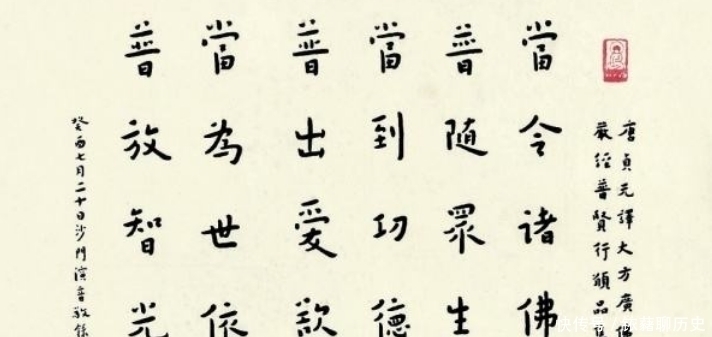 唐貞元譯大方廣佛
嚴經普賢行願品集
當令諸佛
普隨眾生
當到功德
普出愛欲
當為世依
普放智光
癸酉七月二十日沙門演音敬錄
快传号/
聊历史